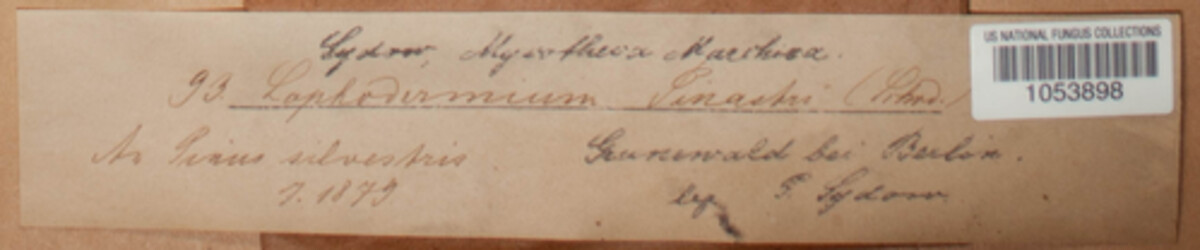 Sydow, Mycotheca Marchica.
93. Lophodermium Pinastri (Schrad.)
An Pinus silvestris
7. 1879
Grunewald bei Berlin.
leg. P. Sydow.
US NATIONAL FUNGUS COLLECTIONS
1053898